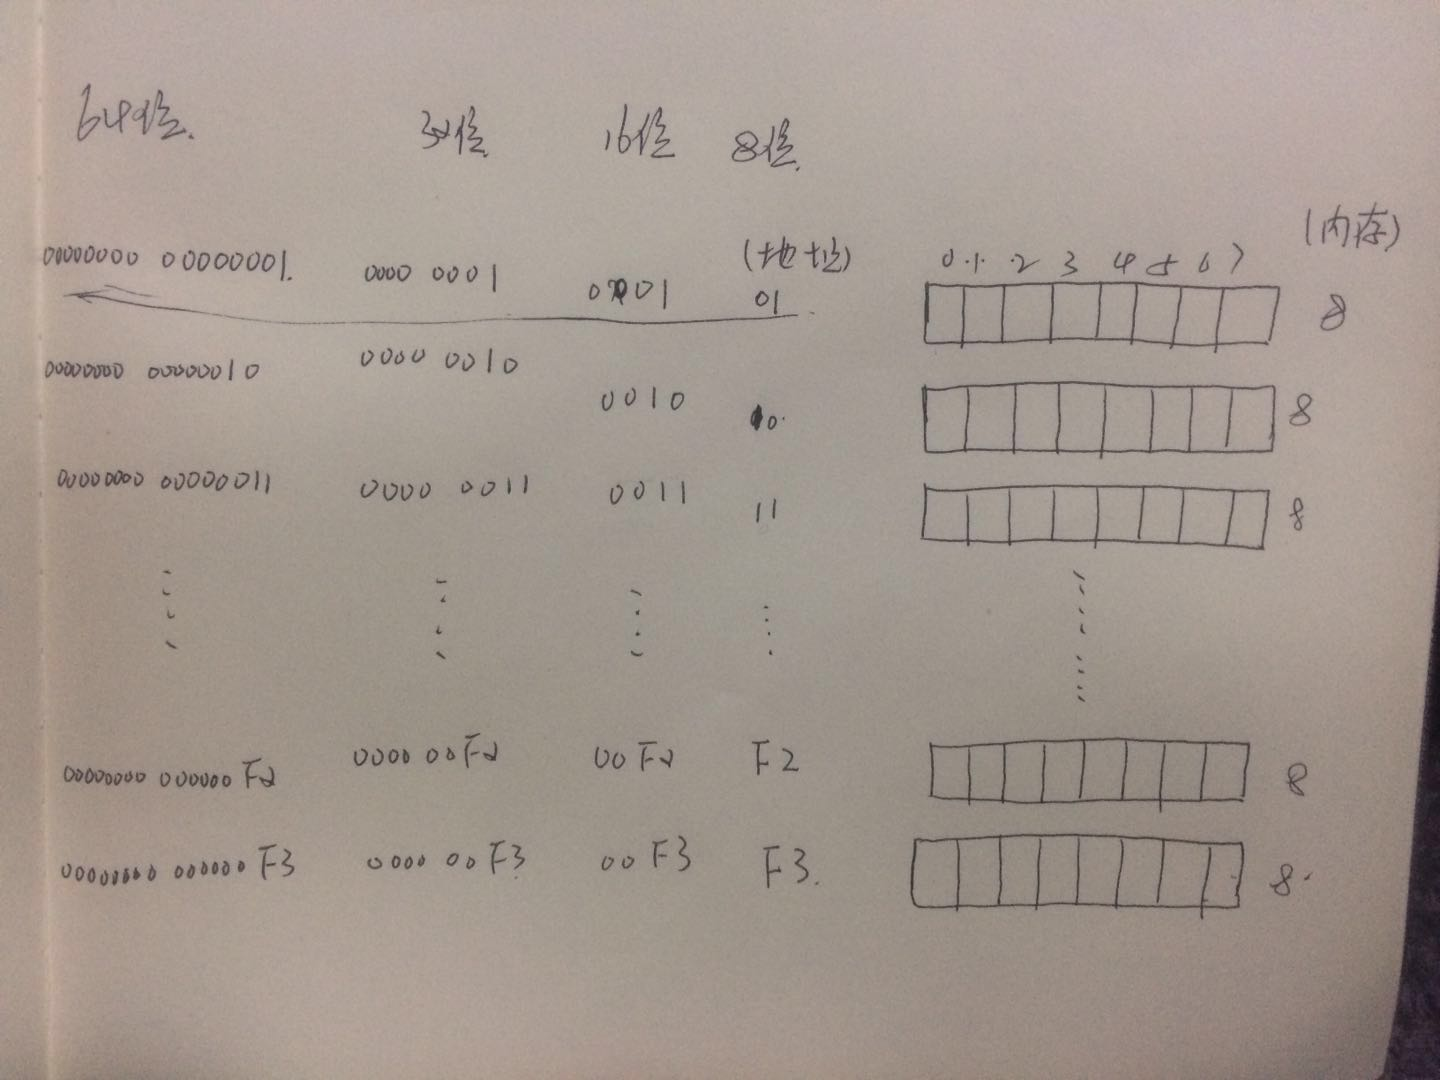 64位. 32位 16位 8位.
(地址) 0 1 2 3 4 5 6 7 (内存)
00000000 00000001. 0000 0001 0001 01 8
00000000 00000010 0000 0010 0010 10. 8
00000000 00000011 0000 0011 0011 11 8
00000000 000000F2 0000 00F2 00F2 F2 8
00000000 000000F3 0000 00F3 00F3 F3. 8.